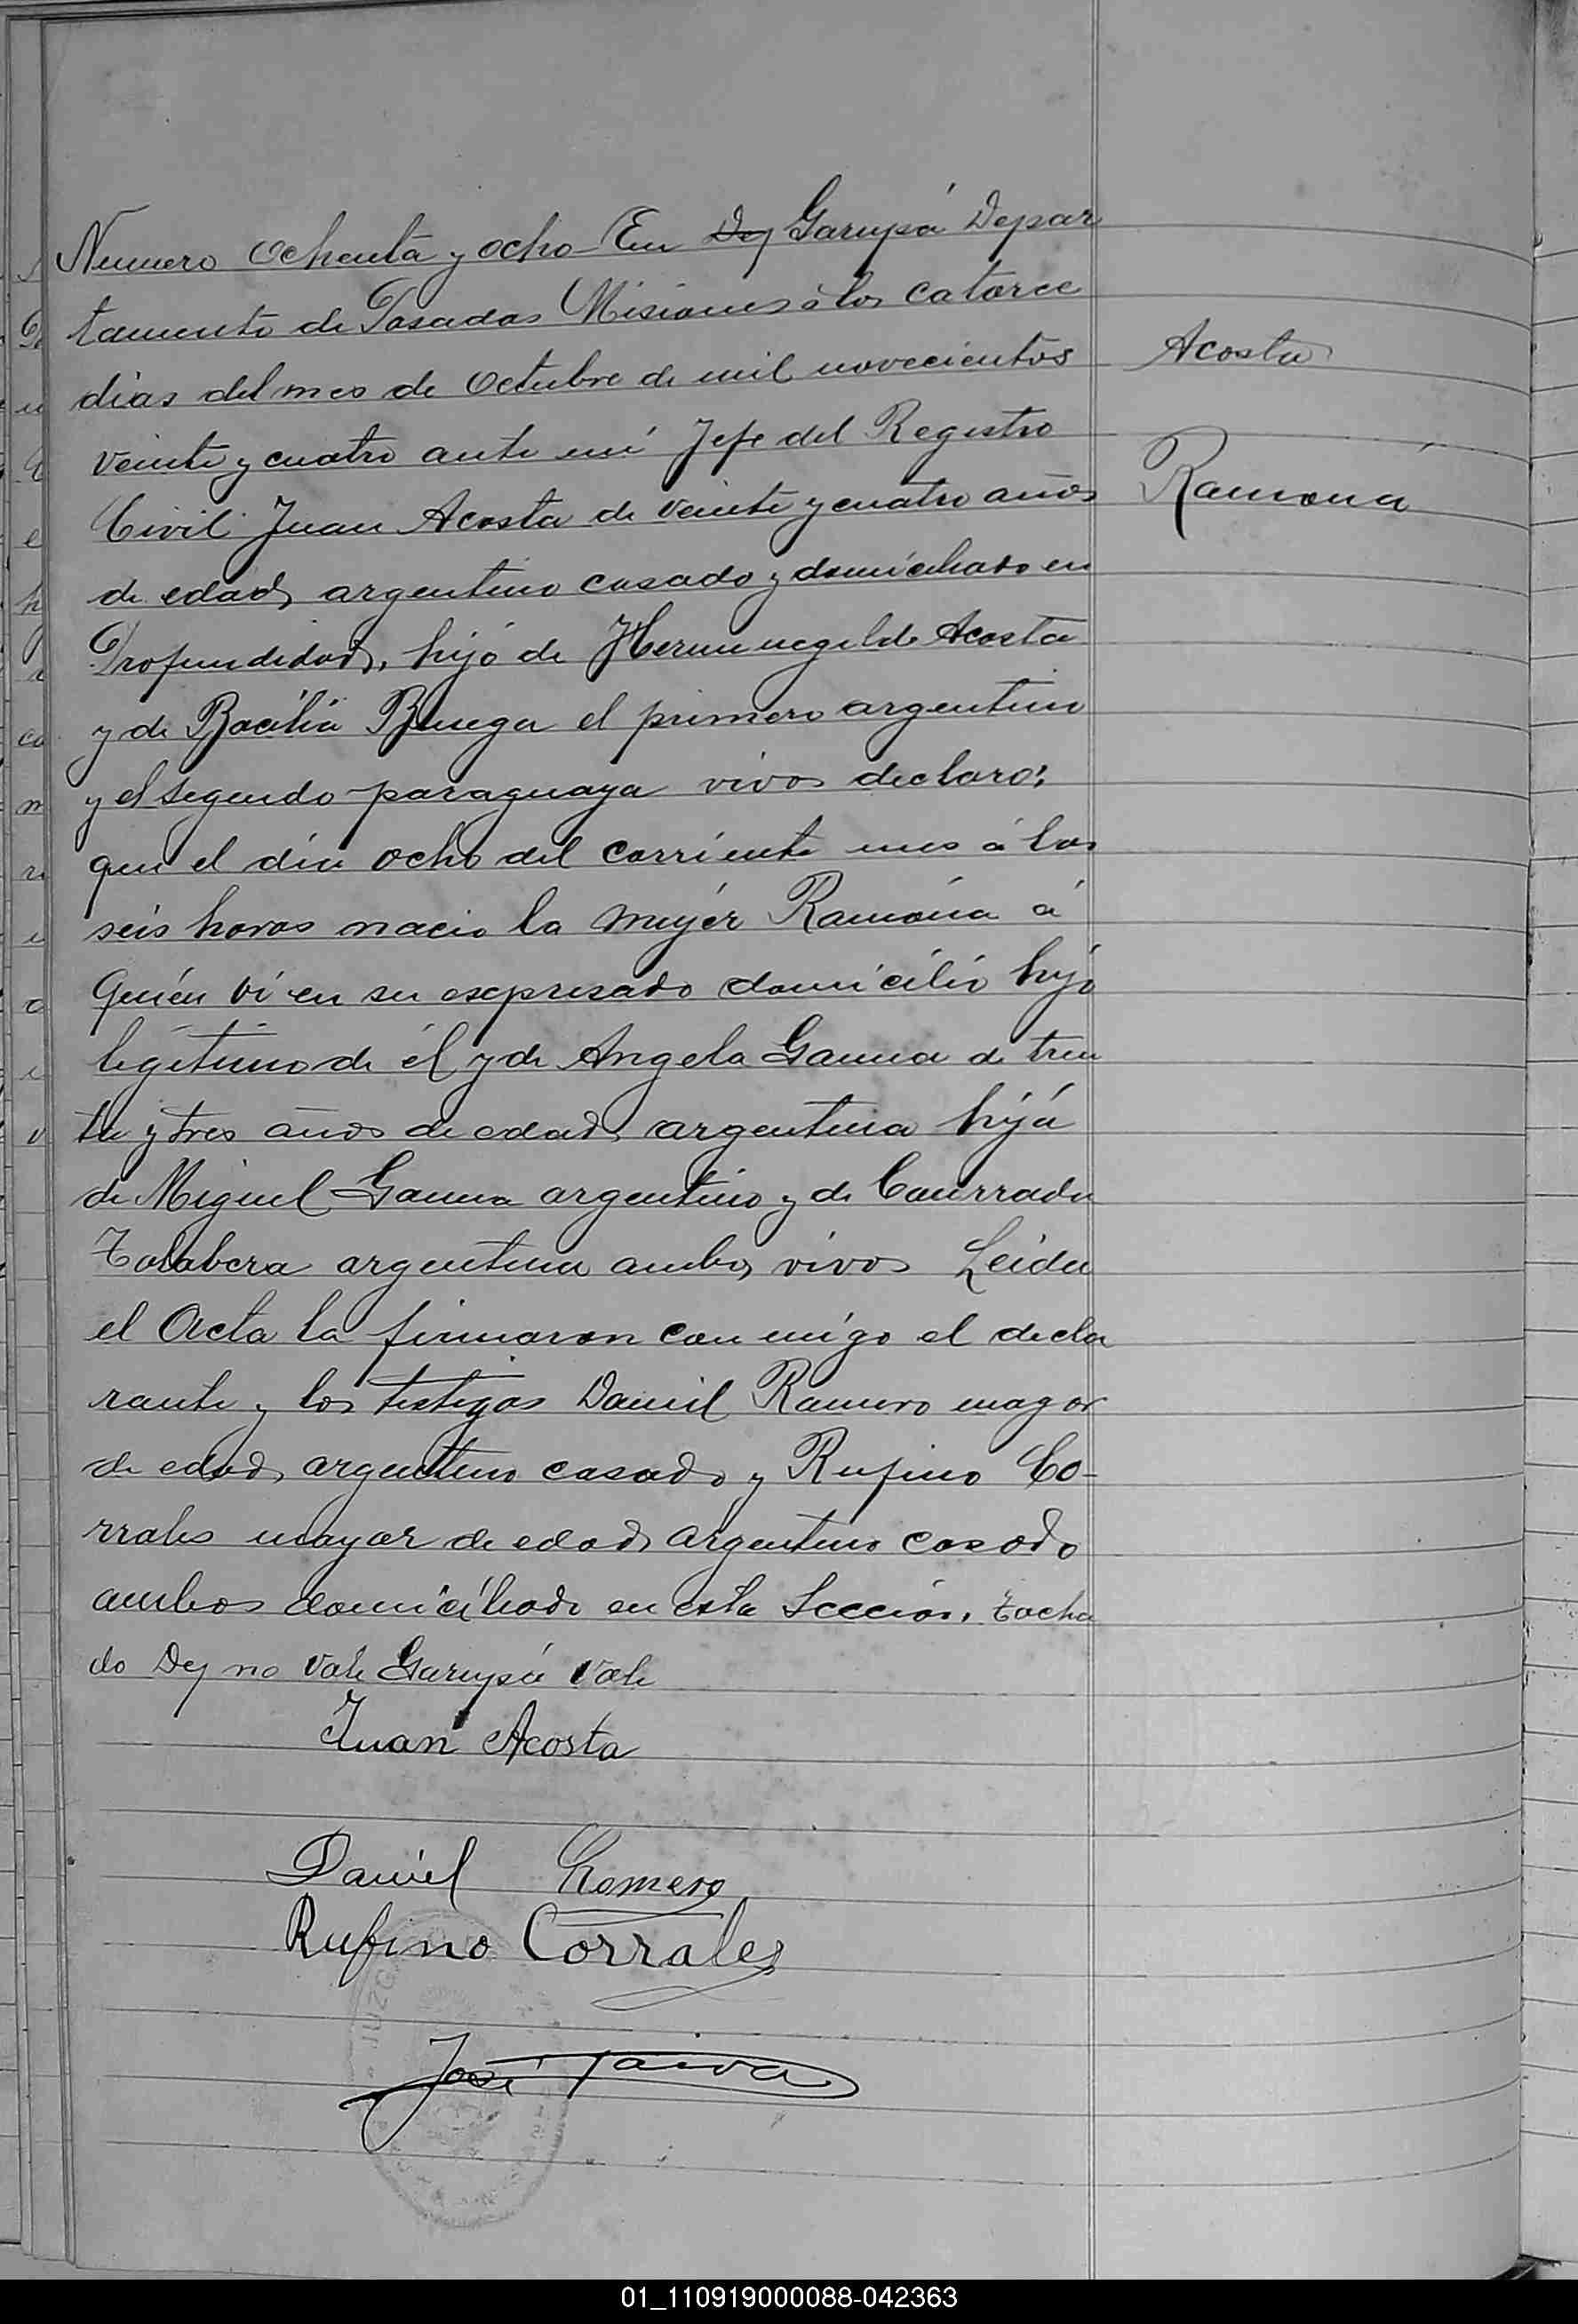 Numero ochenta y ocho En Dej Garupá Depar
tamento de Posadas Misiones á los catorce
dias del mes de Octubre de mil novecientos
Acosta
veinte y cuatro ante mi Jefe del Registro
Civil Juan Acosta de veinte y cuatro años
Ramona
de edad argentino casado y domiciliado en
Profundidad, hijo de Hermenegildo Acosta
y de Bacilia el primero argentino
y el segundo paraguaya vivos declaro:
que el dia ocho del corriente mes á las
seis horas nacio la mujer Ramona á
quién vi en su expresado domicilio hijo
legitimo de él y de Angela Gauna de trein
ta y tres años de edad argentina hija
de Miguel Gauna argentino y de Counrrada
Talabera argentina ambos vivos Leida
el Acta la firmaron con migo el decla
rante y los testigos Daniel Romero mayor
de edad argentino casado y Rufino Co-
rrales mayor de edad argentino casado
ambos domiciliado en esta Sección, tacha
do Dej no vale Garupá vale
Juan Acosta
Daniel Romero
Rufino Corrales
José Paiva
JUZG
01_110919000088-042363